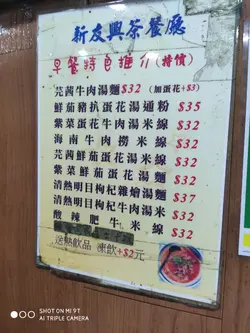 新友興茶餐廳
早餐特色推介(特價)
芫茜牛肉湯麵$32 (加蛋花+$3)
鮮茄豬扒蛋花湯通粉 $35
紫菜蛋花牛肉湯米線 $32
海南牛肉撈米線 $32
芫茜鮮茄蛋花湯麵 $32
紫菜鮮茄蛋花麵 $32
清熱明目枸杞雜燴湯麵 $37
清熱明目枸杞牛肉湯米 $32
酸辣肥牛米線 $32
熱飲品 凍飲+$2元
SHOT ON MI 9T
AI TRIPLE CAMERA